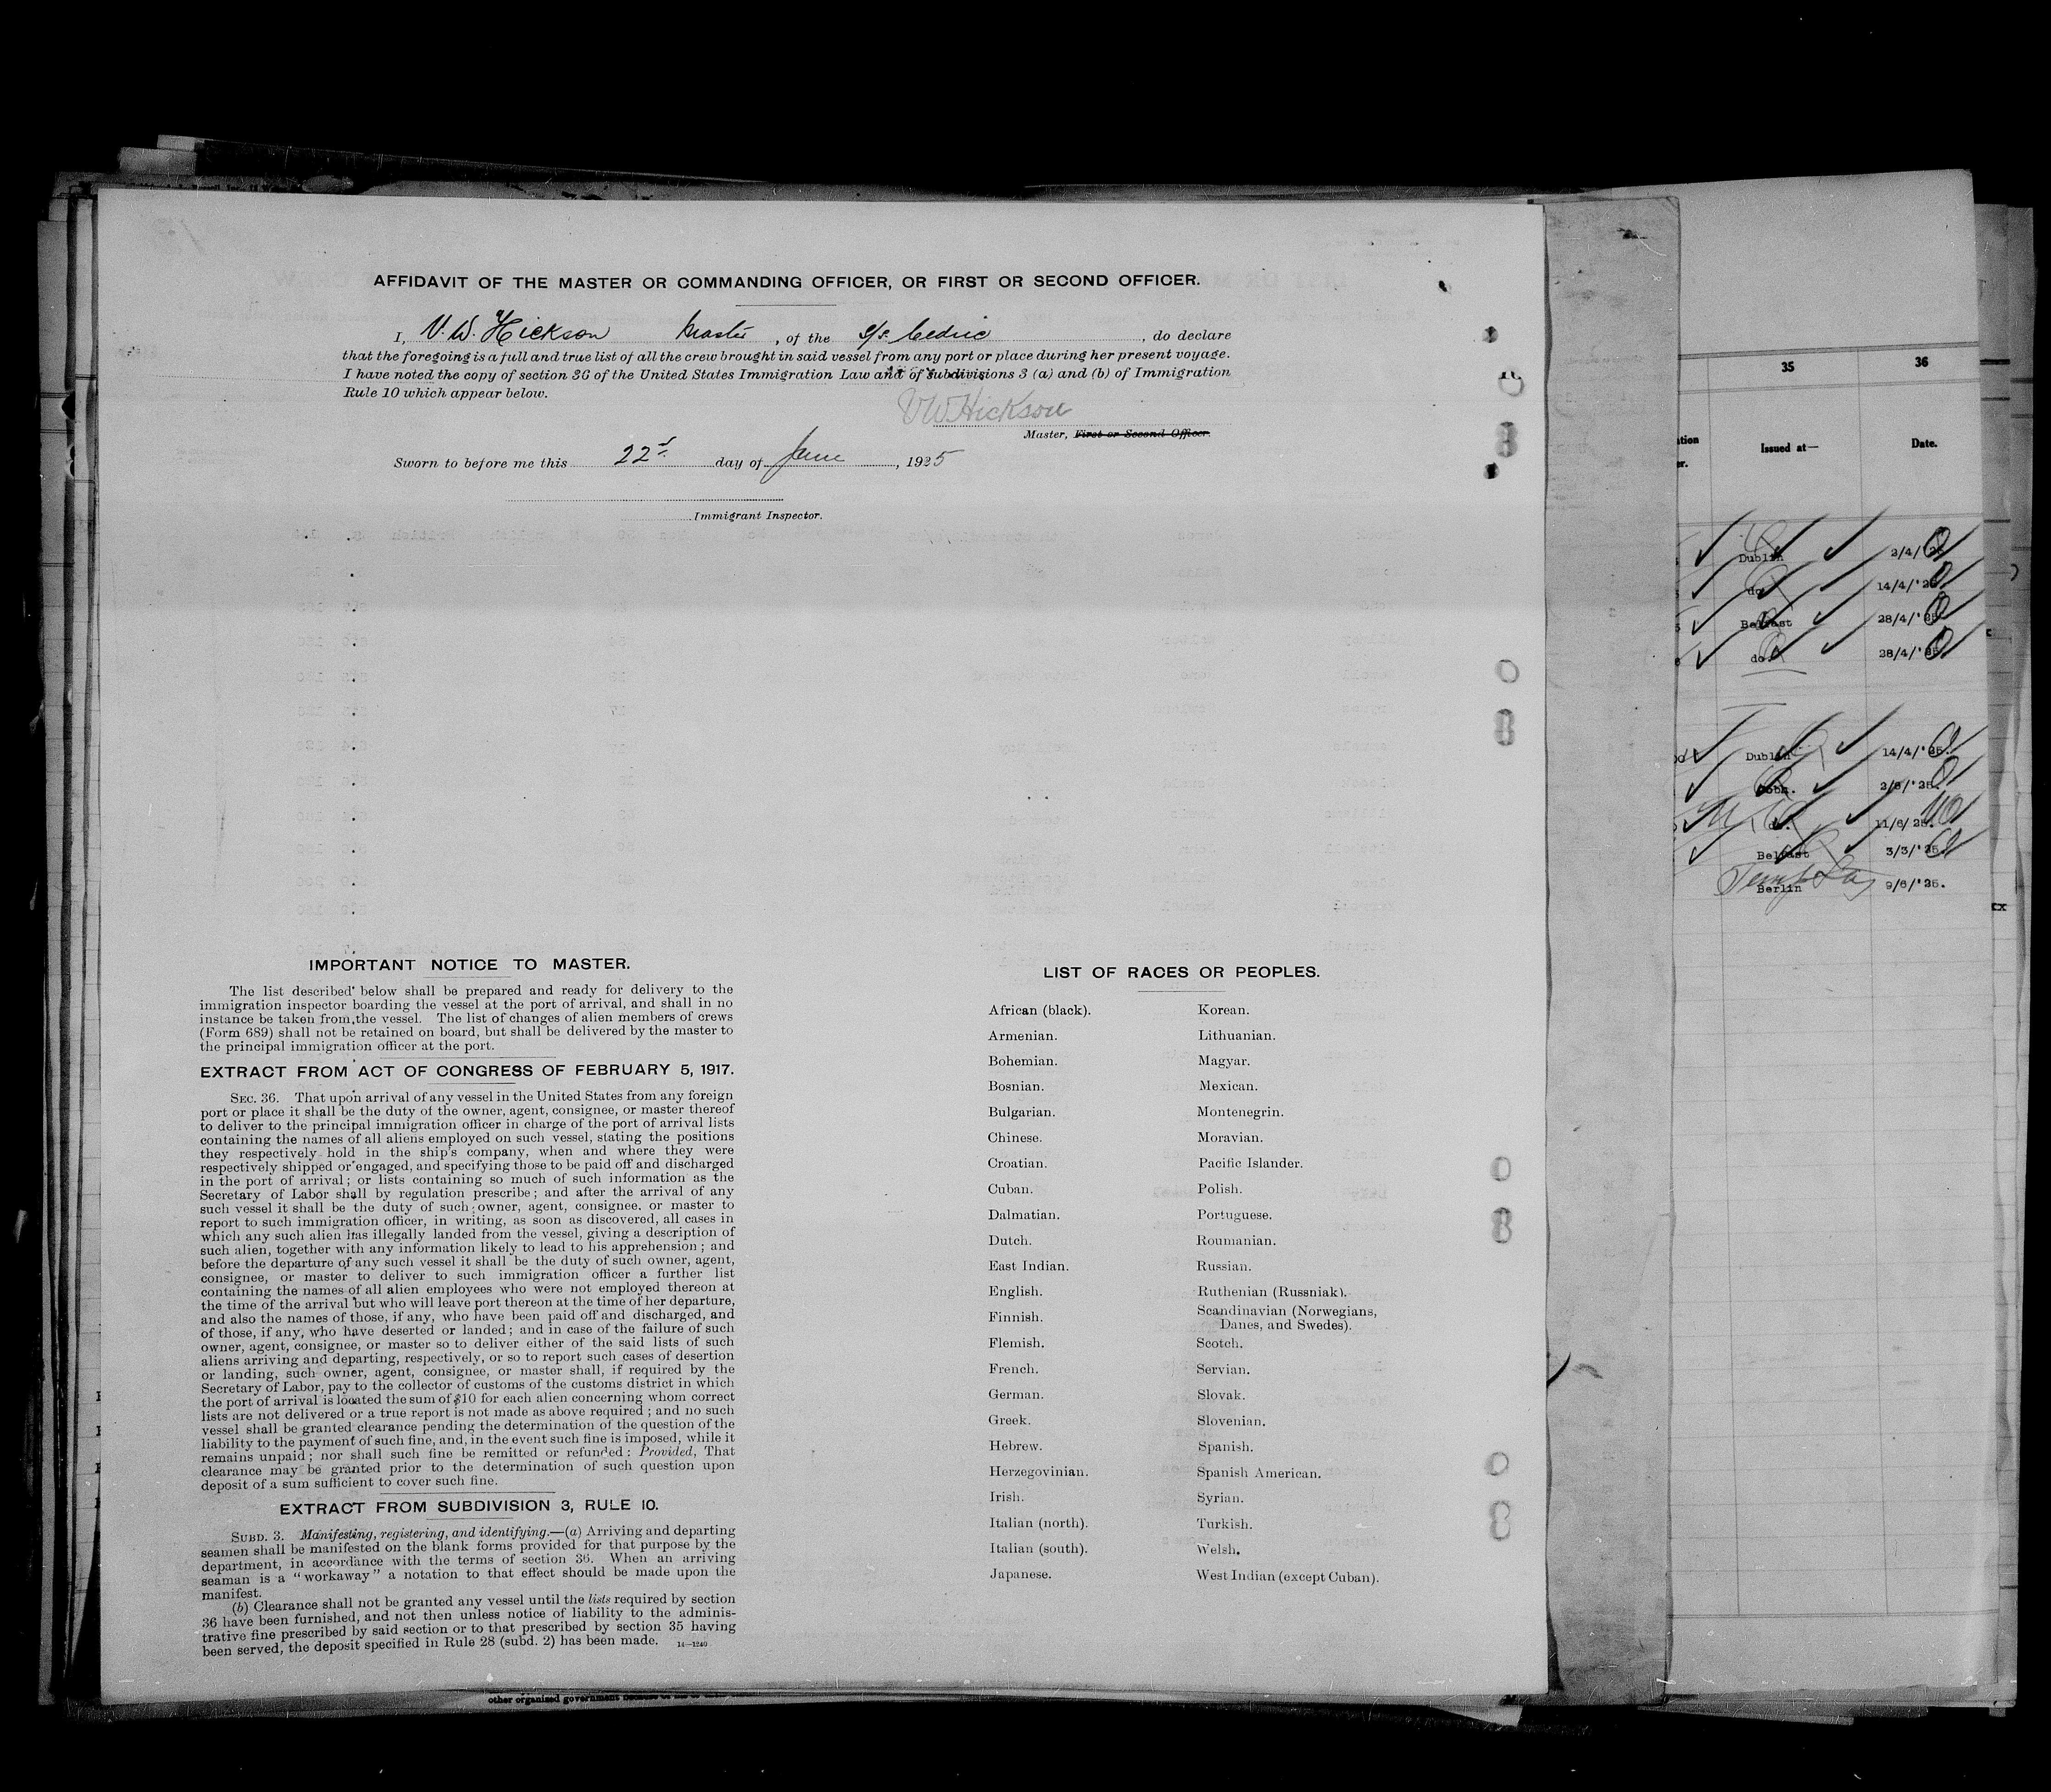 AFFIDAVIT OF THE MASTER OR COMMANDING OFFICER, OR FIRST OR SECOND OFFICER.
I, V. W. Hickson Master, of the s/s. Cedric, do declare
that the foregoing is a full and true list of all the crew brought in said vessel from any port or place during her present voyage.
I have noted the copy of section 36 of the United States Immigration Law and of subdivisions 3 (a) and (b) of Immigration
Rule 10 which appear below.
VW Hickson
Master, First or Second Officer.
Sworn to before me this 22d day of June, 1925
Immigrant Inspector.
IMPORTANT NOTICE TO MASTER.
The list described below shall be prepared and ready for delivery to the
immigration inspector boarding the vessel at the port of arrival, and shall in no
instance be taken from the vessel. The list of changes of alien members of crews
(Form 689) shall not be retained on board, but shall be delivered by the master to
the principal immigration officer at the port.
EXTRACT FROM ACT OF CONGRESS OF FEBRUARY 5, 1917.
SEC. 36. That upon arrival of any vessel in the United States from any foreign
port or place it shall be the duty of the owner, agent, consignee, or master thereof
to deliver to the principal immigration officer in charge of the port of arrival lists
containing the names of all aliens employed on such vessel, stating the positions
they respectively hold in the ship's company, when and where they were
respectively shipped or engaged, and specifying those to be paid off and discharged
in the port of arrival; or lists containing so much of such information as the
Secretary of Labor shall by regulation prescribe; and after the arrival of any
such vessel it shall be the duty of such owner, agent, consignee, or master to
report to such immigration officer, in writing, as soon as discovered, all cases in
which any such alien has illegally landed from the vessel, giving a description of
such alien, together with any information likely to lead to his apprehension; and
before the departure of any such vessel it shall be the duty of such owner, agent,
consignee, or master to deliver to such immigration officer a further list
containing the names of all alien employees who were not employed thereon at
the time of the arrival but who will leave port thereon at the time of her departure,
and also the names of those, if any, who have been paid off and discharged, and
of those, if any, who have deserted or landed; and in case of the failure of such
owner, agent, consignee, or master so to deliver either of the said lists of such
aliens arriving and departing, respectively, or so to report such cases of desertion
or landing, such owner, agent, consignee, or master shall, if required by the
Secretary of Labor, pay to the collector of customs of the customs district in which
the port of arrival is located the sum of $10 for each alien concerning whom correct
lists are not delivered or a true report is not made as above required; and no such
vessel shall be granted clearance pending the determination of the question of the
liability to the payment of such fine, and, in the event such fine is imposed, while it
remains unpaid; nor shall such fine be remitted or refunded: Provided, That
clearance may be granted prior to the determination of such question upon
deposit of a sum sufficient to cover such fine.
EXTRACT FROM SUBDIVISION 3, RULE 10.
SUBD. 3. Manifesting, registering, and identifying.—(a) Arriving and departing
seamen shall be manifested on the blank forms provided for that purpose by the
department, in accordance with the terms of section 36. When an arriving
seaman is a "workaway" a notation to that effect should be made upon the
manifest.
(b) Clearance shall not be granted any vessel until the lists required by section
36 have been furnished, and not then unless notice of liability to the adminis-
trative fine prescribed by said section or to that prescribed by section 35 having
been served, the deposit specified in Rule 28 (subd. 2) has been made. 14—1240
LIST OF RACES OR PEOPLES.
African (black).
Armenian.
Bohemian.
Bosnian.
Bulgarian.
Chinese.
Croatian.
Cuban.
Dalmatian.
Dutch.
East Indian.
English.
Finnish.
Flemish.
French.
German.
Greek.
Hebrew.
Herzegovinian.
Irish.
Italian (north).
Italian (south).
Japanese.
Korean.
Lithuanian.
Magyar.
Mexican.
Montenegrin.
Moravian.
Pacific Islander.
Polish.
Portuguese.
Roumanian.
Russian.
Ruthenian (Russniak).
Scandinavian (Norwegians,
Danes, and Swedes).
Scotch.
Servian.
Slovak.
Slovenian.
Spanish.
Spanish American.
Syrian.
Turkish.
Welsh.
West Indian (except Cuban).
35 36
Issued at— Date.
Dublin 2/4/'25
do. 14/4/'25
Belfast 28/4/'25
do. 28/4/'25
Dublin 14/4/'25.
2/6/'25.
do. 11/6/'25.
Belfast 3/3/'25.
Berlin 9/6/'25.
other organized government